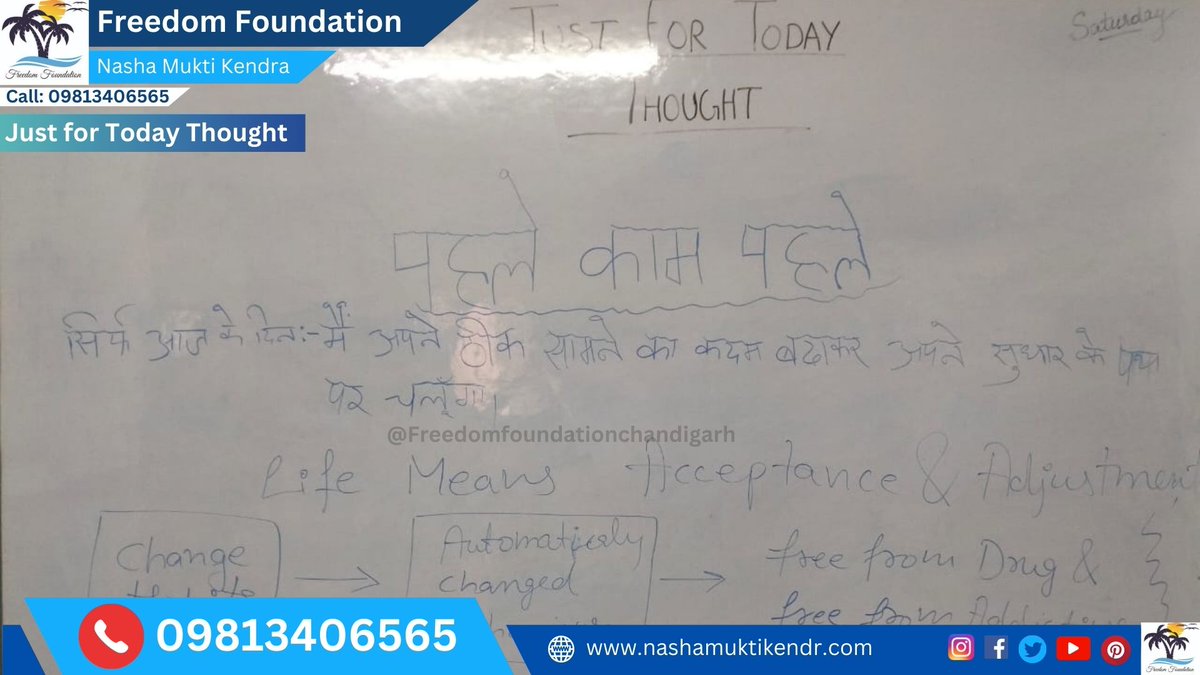 Freedom Foundation
Freedom Foundation
Nasha Mukti Kendra
Call: 09813406565
Just for Today Thought
JUST FOR TODAY
Saturday
THOUGHT
पहले काम पहले
सिर्फ आज के दिन:- मैं अपने ठीक सामने का कदम बढाकर अपने सुधार के
पर चलूँगा।
@Freedomfoundationchandigarh
Life Means Acceptance & Adjustment
Change
Automatically
changed
free from Drug &
free from
09813406565
www.nashamuktikendr.com
Freedom Foundation